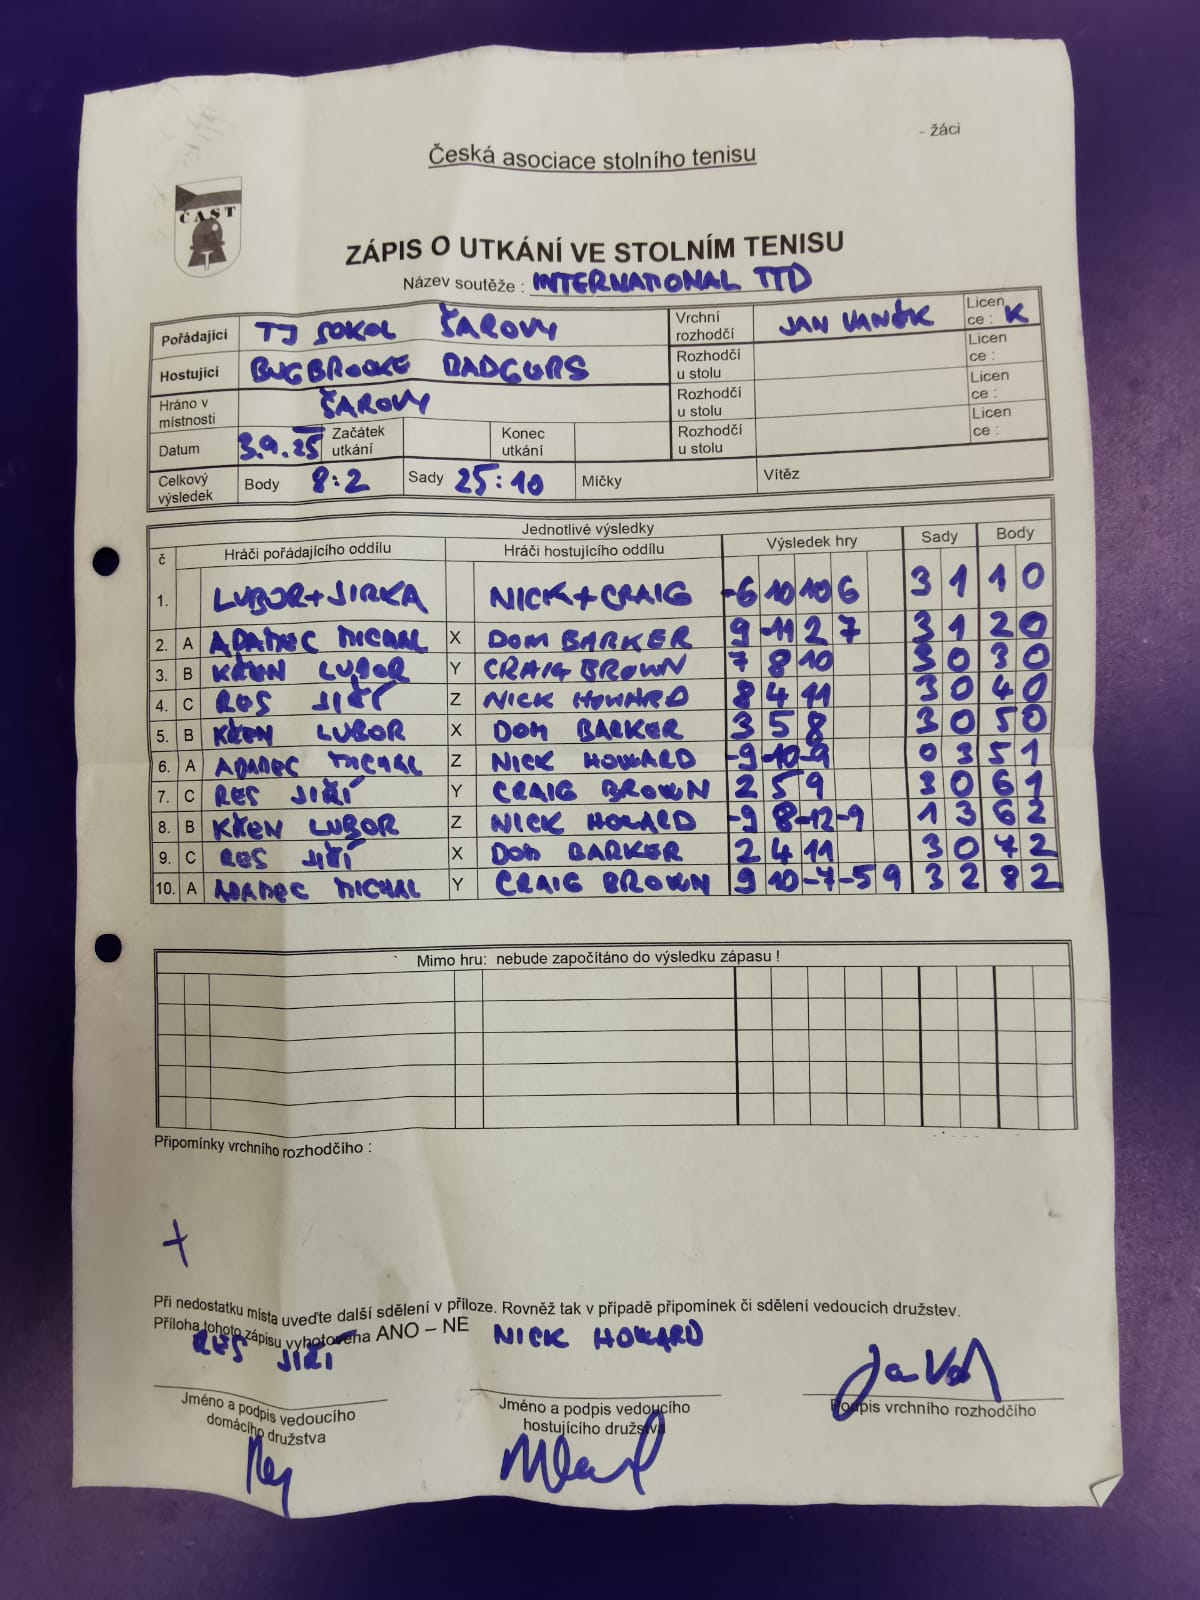 - žáci
Česká asociace stolního tenisu
ČAST
ZÁPIS O UTKÁNÍ VE STOLNÍM TENISU
Název soutěže : INTERNATIONAL TTD
Pořádající TJ SOKOL ŠAROVY Vrchní rozhodčí JAN VANĚK Licence : K
Hostující BUGBROOKE BADGERS Rozhodčí u stolu Licence :
Hráno v místnosti ŠAROVY Rozhodčí u stolu Licence :
Datum 3.9.25 Začátek utkání Konec utkání Rozhodčí u stolu Licence :
Celkový výsledek Body 8:2 Sady 25:10 Míčky Vítěz
Jednotlivé výsledky
č Hráči pořádajícího oddílu Hráči hostujícího oddílu Výsledek hry Sady Body
1. LUBOR+JIRKA NICK+CRAIG -6 10 10 6 3 1 1 0
2. A ADAMEC MICHAL X DOM BARKER 9 -11 2 7 3 1 2 0
3. B KŘEN LUBOR Y CRAIG BROWN 7 8 10 3 0 3 0
4. C RES JIŘÍ Z NICK HOWARD 8 4 11 3 0 4 0
5. B KŘEN LUBOR X DOM BARKER 3 5 8 3 0 5 0
6. A ADAMEC MICHAL Z NICK HOWARD -9 -10 -9 0 3 5 1
7. C RES JIŘÍ Y CRAIG BROWN 2 5 9 3 0 6 1
8. B KŘEN LUBOR Z NICK HOWARD -9 8 -12 -9 1 3 6 2
9. C RES JIŘÍ X DOM BARKER 2 4 11 3 0 7 2
10. A ADAMEC MICHAL Y CRAIG BROWN 9 10 -7 -5 9 3 2 8 2
Mimo hru: nebude započítáno do výsledku zápasu !
Připomínky vrchního rozhodčího :
Při nedostatku místa uveďte další sdělení v příloze. Rovněž tak v případě připomínek či sdělení vedoucích družstev.
Příloha tohoto zápisu vyhotovena ANO – NE
RES JIŘÍ NICK HOWARD
Jméno a podpis vedoucího domácího družstva
Jméno a podpis vedoucího hostujícího družstva
Podpis vrchního rozhodčího